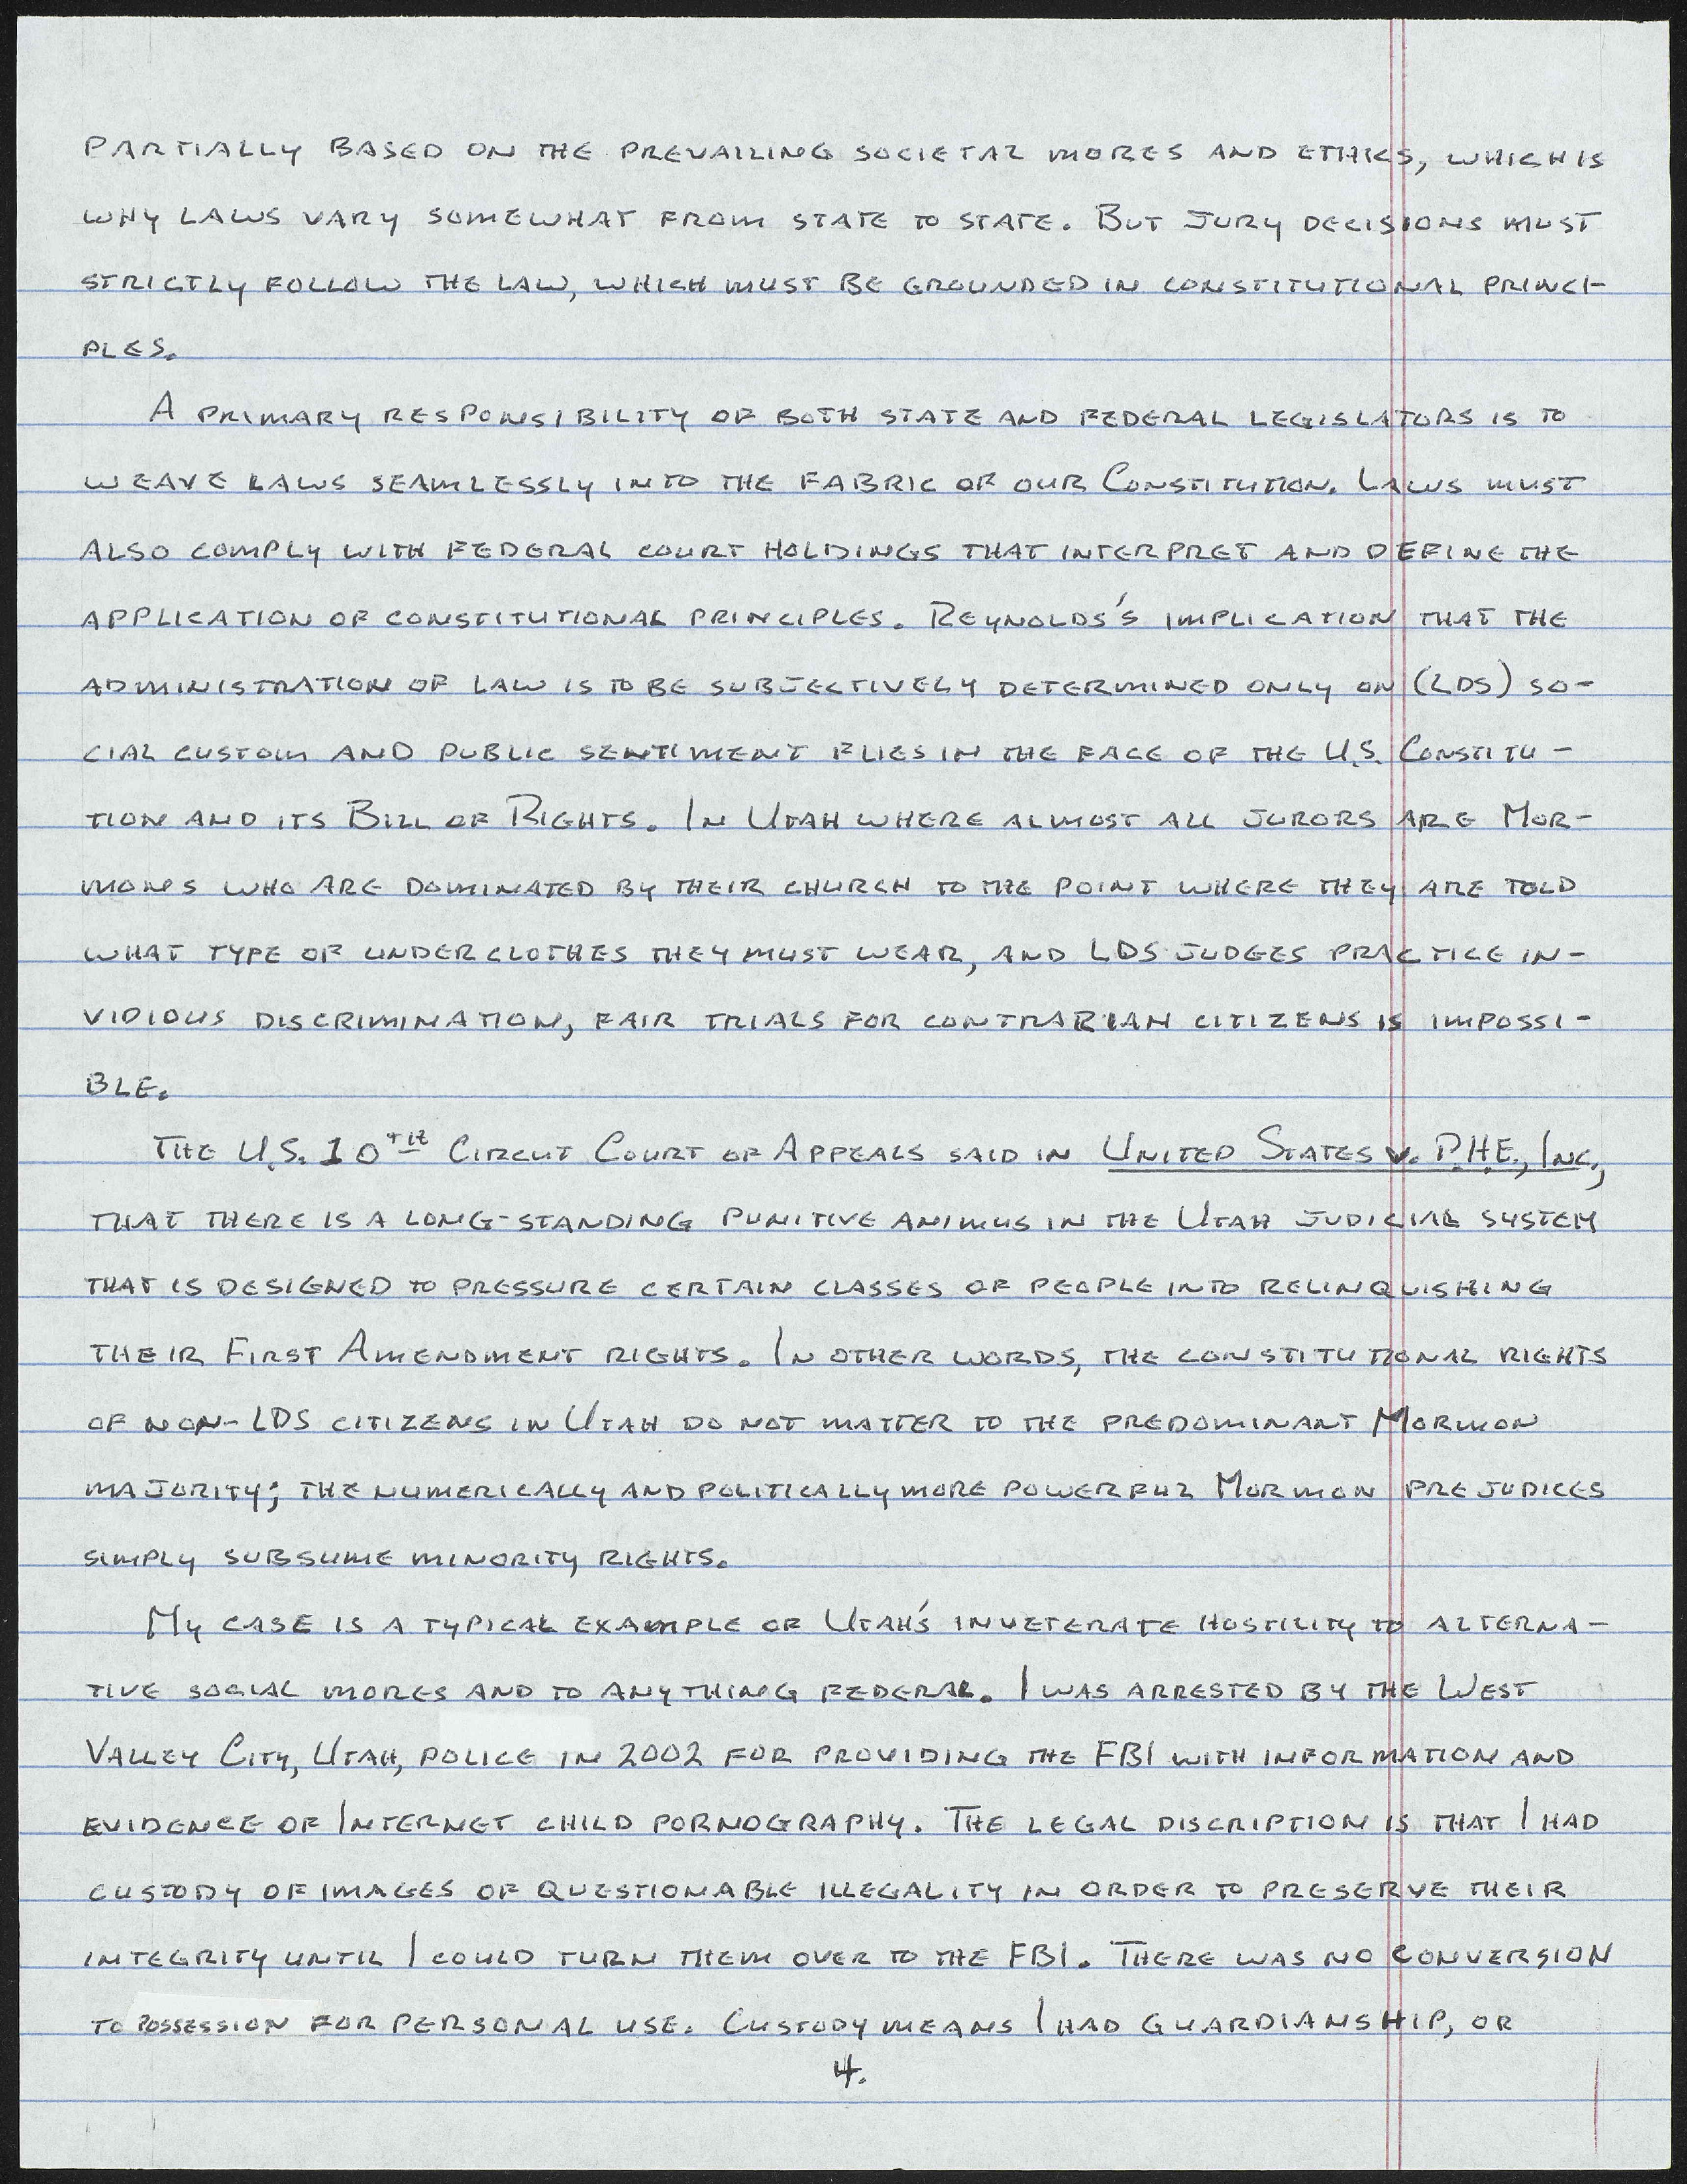 PARTIALLY BASED ON THE PREVAILING SOCIETAL MORES AND ETHICS, WHICH IS
WHY LAWS VARY SOMEWHAT FROM STATE TO STATE. BUT JURY DECISIONS MUST
STRICTLY FOLLOW THE LAW, WHICH MUST BE GROUNDED IN CONSTITUTIONAL PRINCI-
PLES.
A PRIMARY RESPONSIBILITY OF BOTH STATE AND FEDERAL LEGISLATORS IS TO
WEAVE LAWS SEAMLESSLY INTO THE FABRIC OF OUR CONSTITUTION. LAWS MUST
ALSO COMPLY WITH FEDERAL COURT HOLDINGS THAT INTERPRET AND DEFINE THE
APPLICATION OF CONSTITUTIONAL PRINCIPLES. REYNOLDS'S IMPLICATION THAT THE
ADMINISTRATION OF LAW IS TO BE SUBJECTIVELY DETERMINED ONLY ON (LDS) SO-
CIAL CUSTOM AND PUBLIC SENTIMENT FLIES IN THE FACE OF THE U.S. CONSTITU-
TION AND ITS BILL OF RIGHTS. IN UTAH WHERE ALMOST ALL JURORS ARE MOR-
MONS WHO ARE DOMINATED BY THEIR CHURCH TO THE POINT WHERE THEY ARE TOLD
WHAT TYPE OF UNDERCLOTHES THEY MUST WEAR, AND LDS JUDGES PRACTICE IN-
VIDIOUS DISCRIMINATION, FAIR TRIALS FOR CONTRARIAN CITIZENS IS IMPOSSI-
BLE.
THE U.S. 10TH CIRCUT COURT OF APPEALS SAID IN UNITED STATES V. P.H.E., INC.,
THAT THERE IS A LONG-STANDING PUNITIVE ANIMUS IN THE UTAH JUDICIAL SYSTEM
THAT IS DESIGNED TO PRESSURE CERTAIN CLASSES OF PEOPLE INTO RELINQUISHING
THEIR FIRST AMENDMENT RIGHTS. IN OTHER WORDS, THE CONSTITUTIONAL RIGHTS
OF NON-LDS CITIZENS IN UTAH DO NOT MATTER TO THE PREDOMINANT MORMON
MAJORITY; THE NUMERICALLY AND POLITICALLY MORE POWERFUL MORMON PREJUDICES
SIMPLY SUBSUME MINORITY RIGHTS.
MY CASE IS A TYPICAL EXAMPLE OF UTAH'S INVETERATE HOSTILITY TO ALTERNA-
TIVE SOCIAL MORES AND TO ANYTHING FEDERAL. I WAS ARRESTED BY THE WEST
VALLEY CITY, UTAH, POLICE IN 2002 FOR PROVIDING THE FBI WITH INFORMATION AND
EVIDENCE OF INTERNET CHILD PORNOGRAPHY. THE LEGAL DISCRIPTION IS THAT I HAD
CUSTODY OF IMAGES OF QUESTIONABLE ILLEGALITY IN ORDER TO PRESERVE THEIR
INTEGRITY UNTIL I COULD TURN THEM OVER TO THE FBI. THERE WAS NO CONVERSION
TO POSSESSION FOR PERSONAL USE. CUSTODY MEANS I HAD GUARDIANSHIP, OR
4.